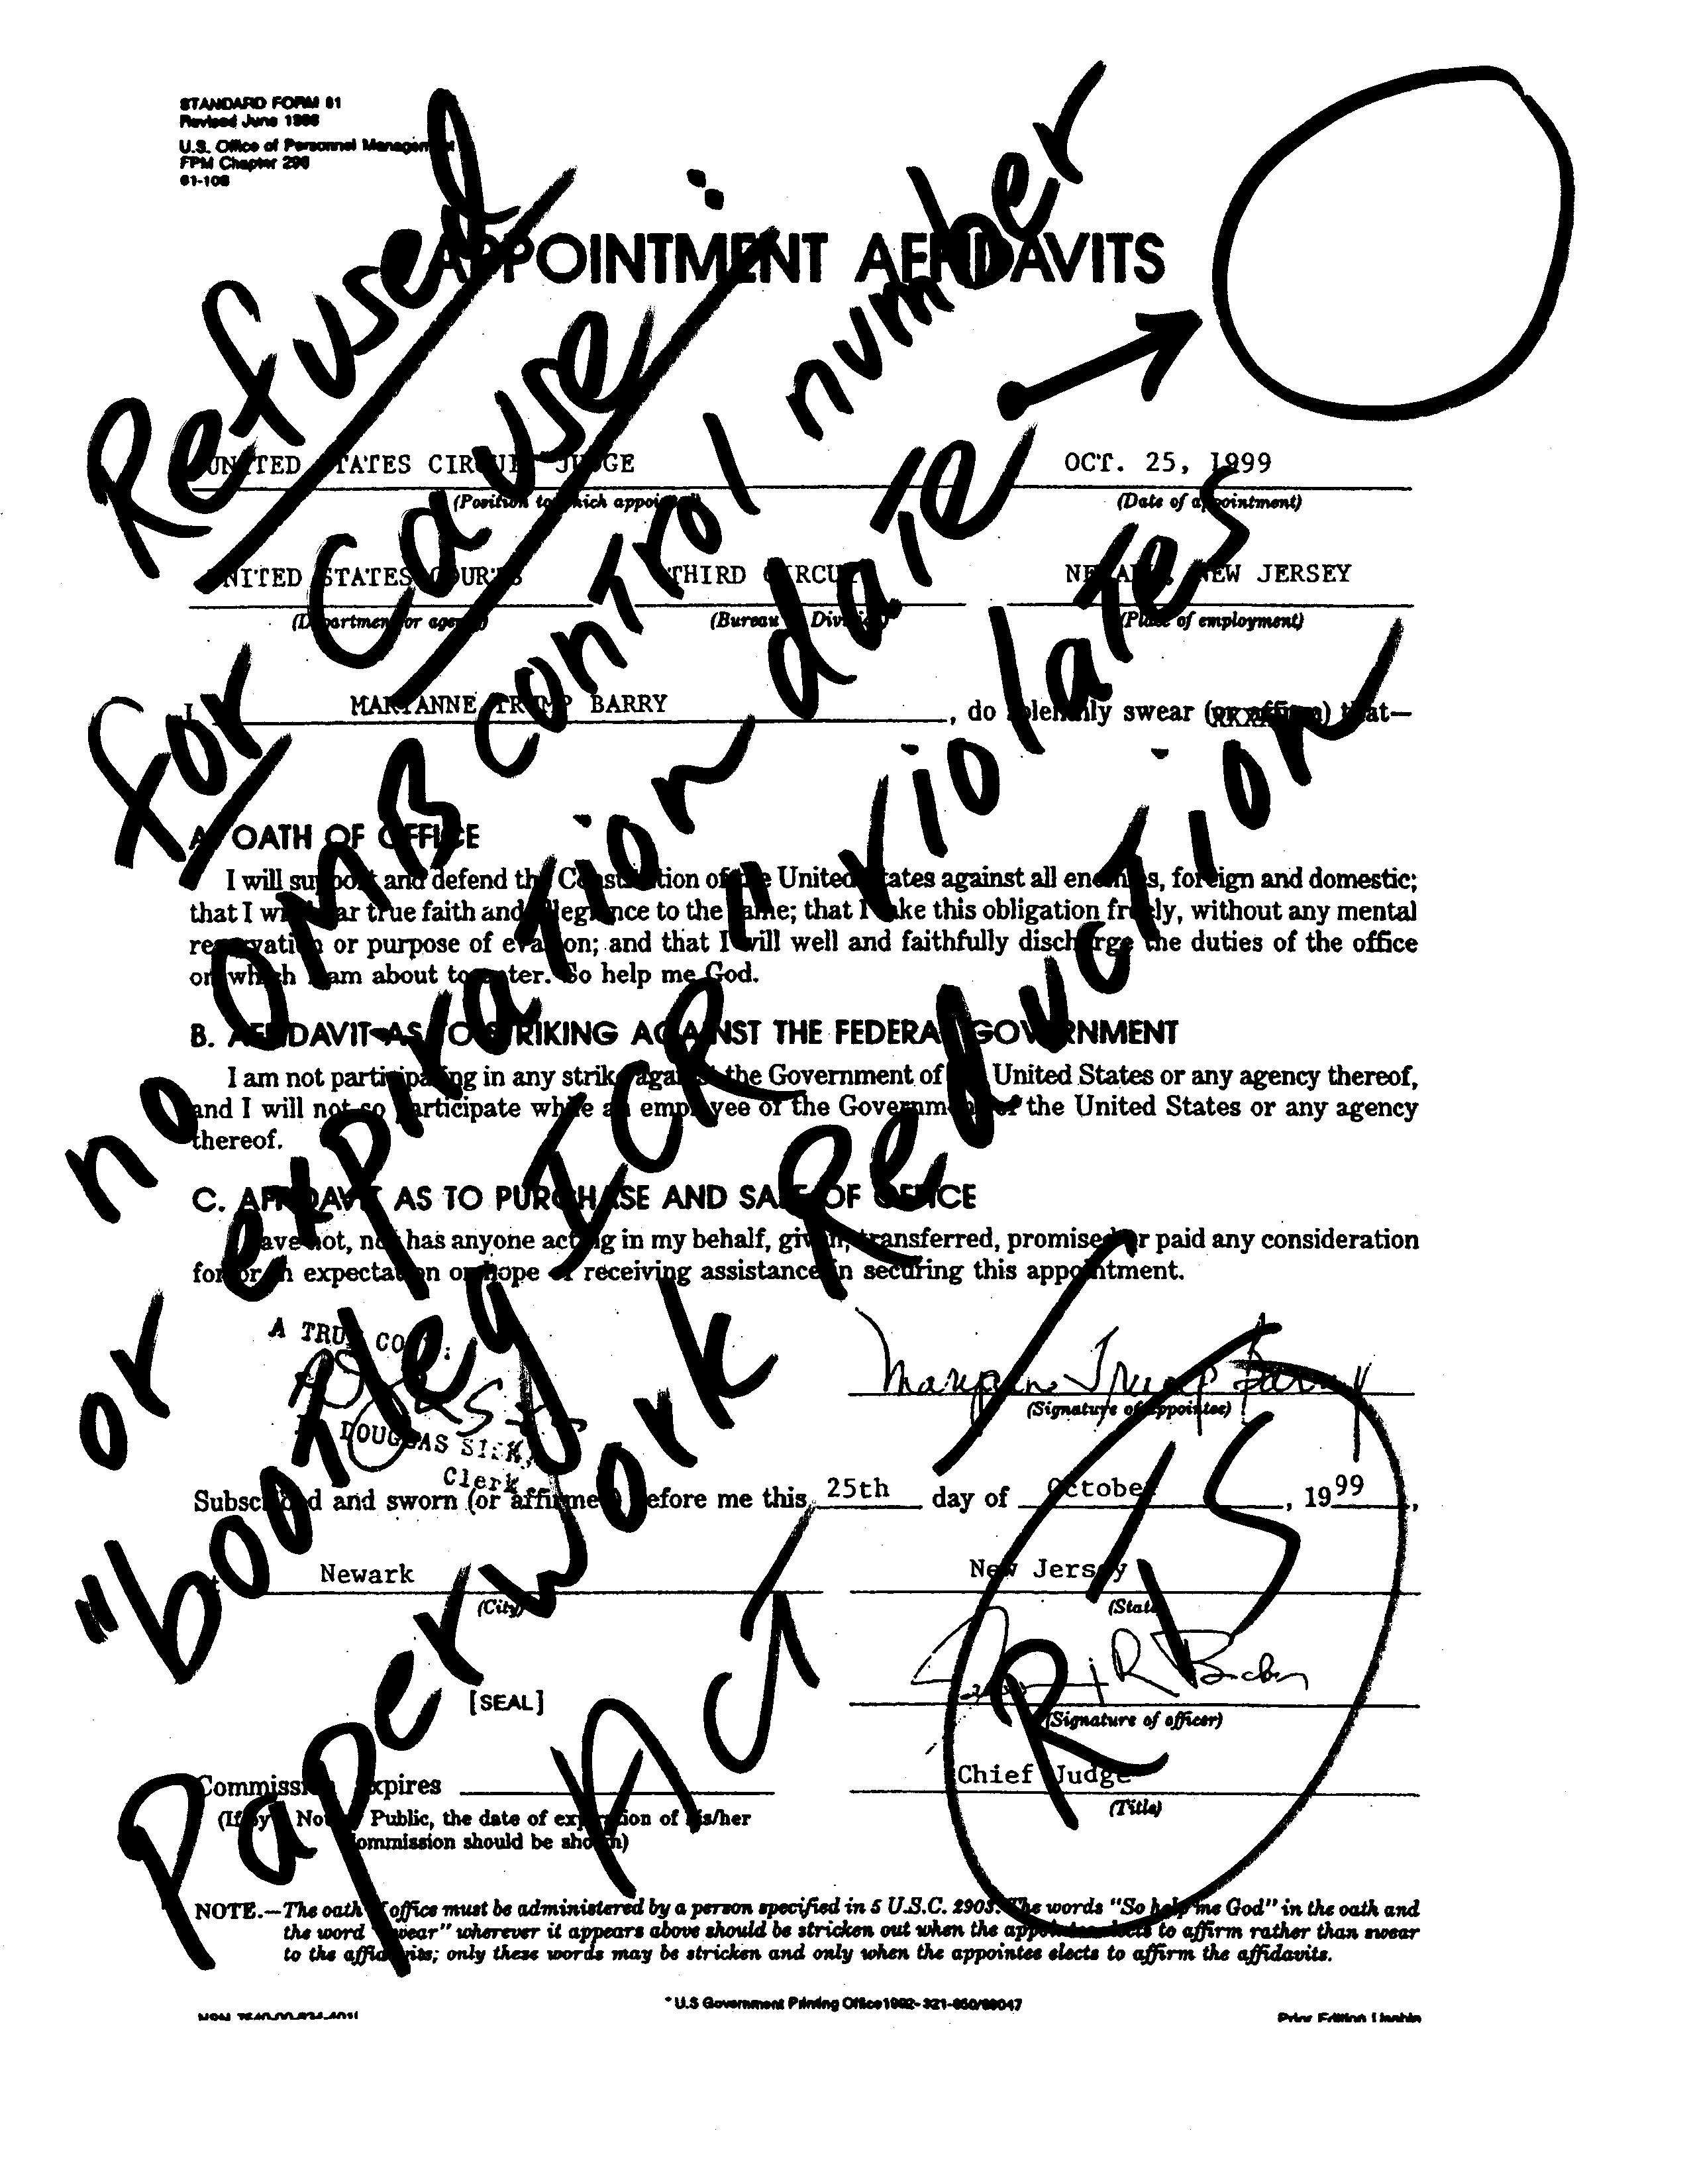 STANDARD FORM 61
Revised June 1986
U.S. Office of Personnel Management
FPM Chapter 296
61-108
APPOINTMENT AFFIDAVITS
UNITED STATES CIRCUIT JUDGE OCT. 25, 1999
(Position to which appointed) (Date of appointment)
UNITED STATES COURTS THIRD CIRCUIT NEWARK, NEW JERSEY
(Department or agency) (Bureau or Division) (Place of employment)
I, MARYANNE TRUMP BARRY, do solemnly swear (or affirm) that—
A. OATH OF OFFICE
I will support and defend the Constitution of the United States against all enemies, foreign and domestic;
that I will bear true faith and allegiance to the same; that I take this obligation freely, without any mental
reservation or purpose of evasion; and that I will well and faithfully discharge the duties of the office
on which I am about to enter. So help me God.
B. AFFIDAVIT AS TO STRIKING AGAINST THE FEDERAL GOVERNMENT
I am not participating in any strike against the Government of the United States or any agency thereof,
and I will not so participate while an employee of the Government of the United States or any agency
thereof.
C. AFFIDAVIT AS TO PURCHASE AND SALE OF OFFICE
I have not, nor has anyone acting in my behalf, given, transferred, promised or paid any consideration
for or in expectation or hope of receiving assistance in securing this appointment.
A TRUE COPY:
DOUGLAS SISK,
Clerk
Maryanne Trump Barry
(Signature of appointee)
Subscribed and sworn (or affirmed) before me this 25th day of October, 1999,
at Newark New Jersey
(City) (State)
[SEAL]
(Signature of officer)
Commission expires Chief Judge
(If by a Notary Public, the date of expiration of his/her (Title)
commission should be shown)
NOTE.—The oath of office must be administered by a person specified in 5 U.S.C. 2903. The words "So help me God" in the oath and
the word "swear" wherever it appears above should be stricken out when the appointee elects to affirm rather than swear
to the affidavits; only these words may be stricken and only when the appointee elects to affirm the affidavits.
* U.S Government Printing Office 1992- 321-
Prior Edition Usable
Refused
for Cause:
no OMB control number
or expiration date
"bootleg ICR" violates
Paperwork Reduction
Act
/S
RTS